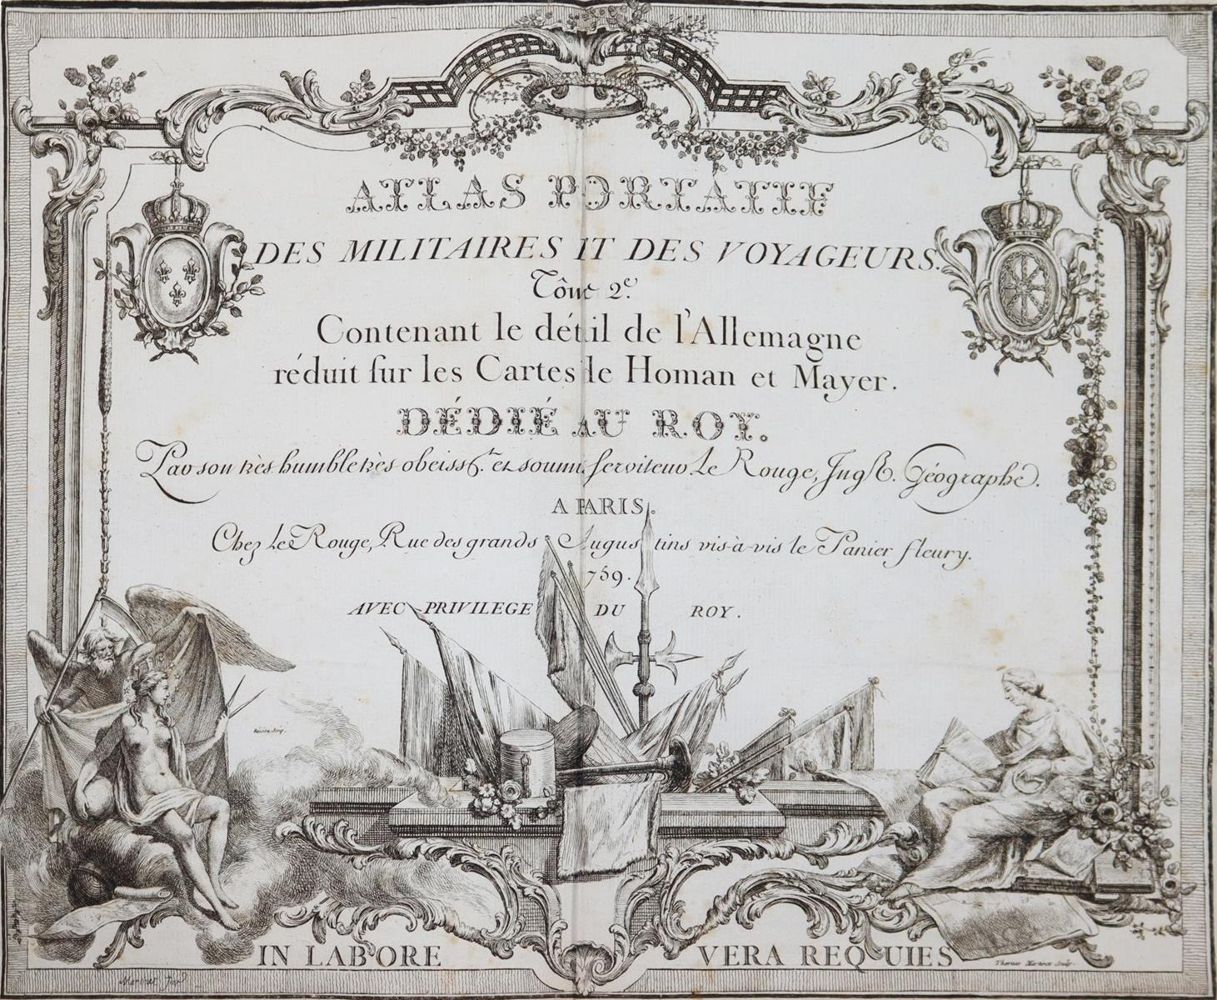 ATLAS PORTATIF
DES MILITAIRES ET DES VOYAGEURS.
Tome 2.e
Contenant le détail de l'Allemagne
réduit sur les Cartes de Homan et Mayer.
DÉDIÉ AU ROY.
Par son très humble très obeiss.t et soumis serviteur Le Rouge, Ingr. Géographe.
A PARIS.
Chez Le Rouge, Rue des grands Augustins vis-à-vis le Panier fleury.
759.
AVEC PRIVILEGE DU ROY.
IN LABORE VERA REQUIES
Martinet